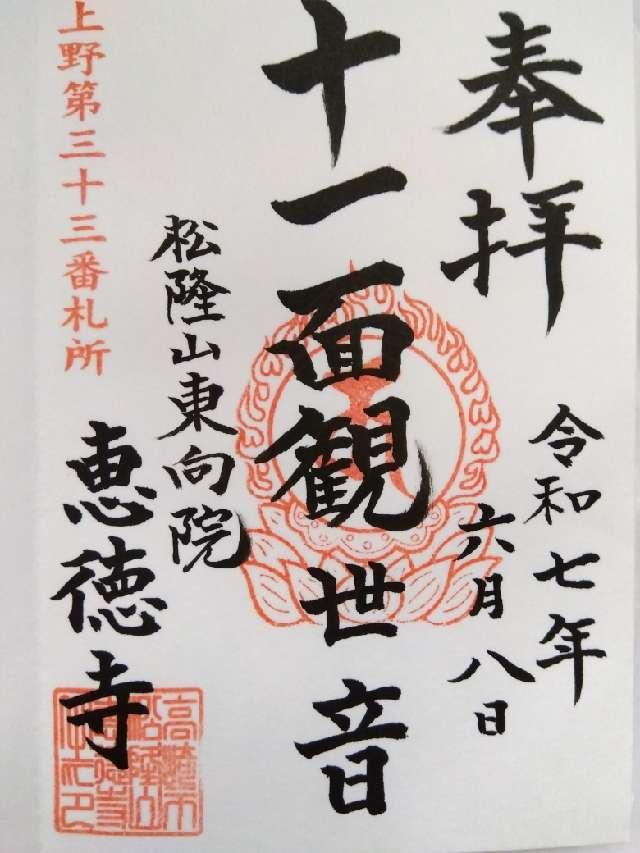 奉拝
令和七年
六月八日
十一面観世音
松隆山東向院
恵徳寺
上野第三十三番札所